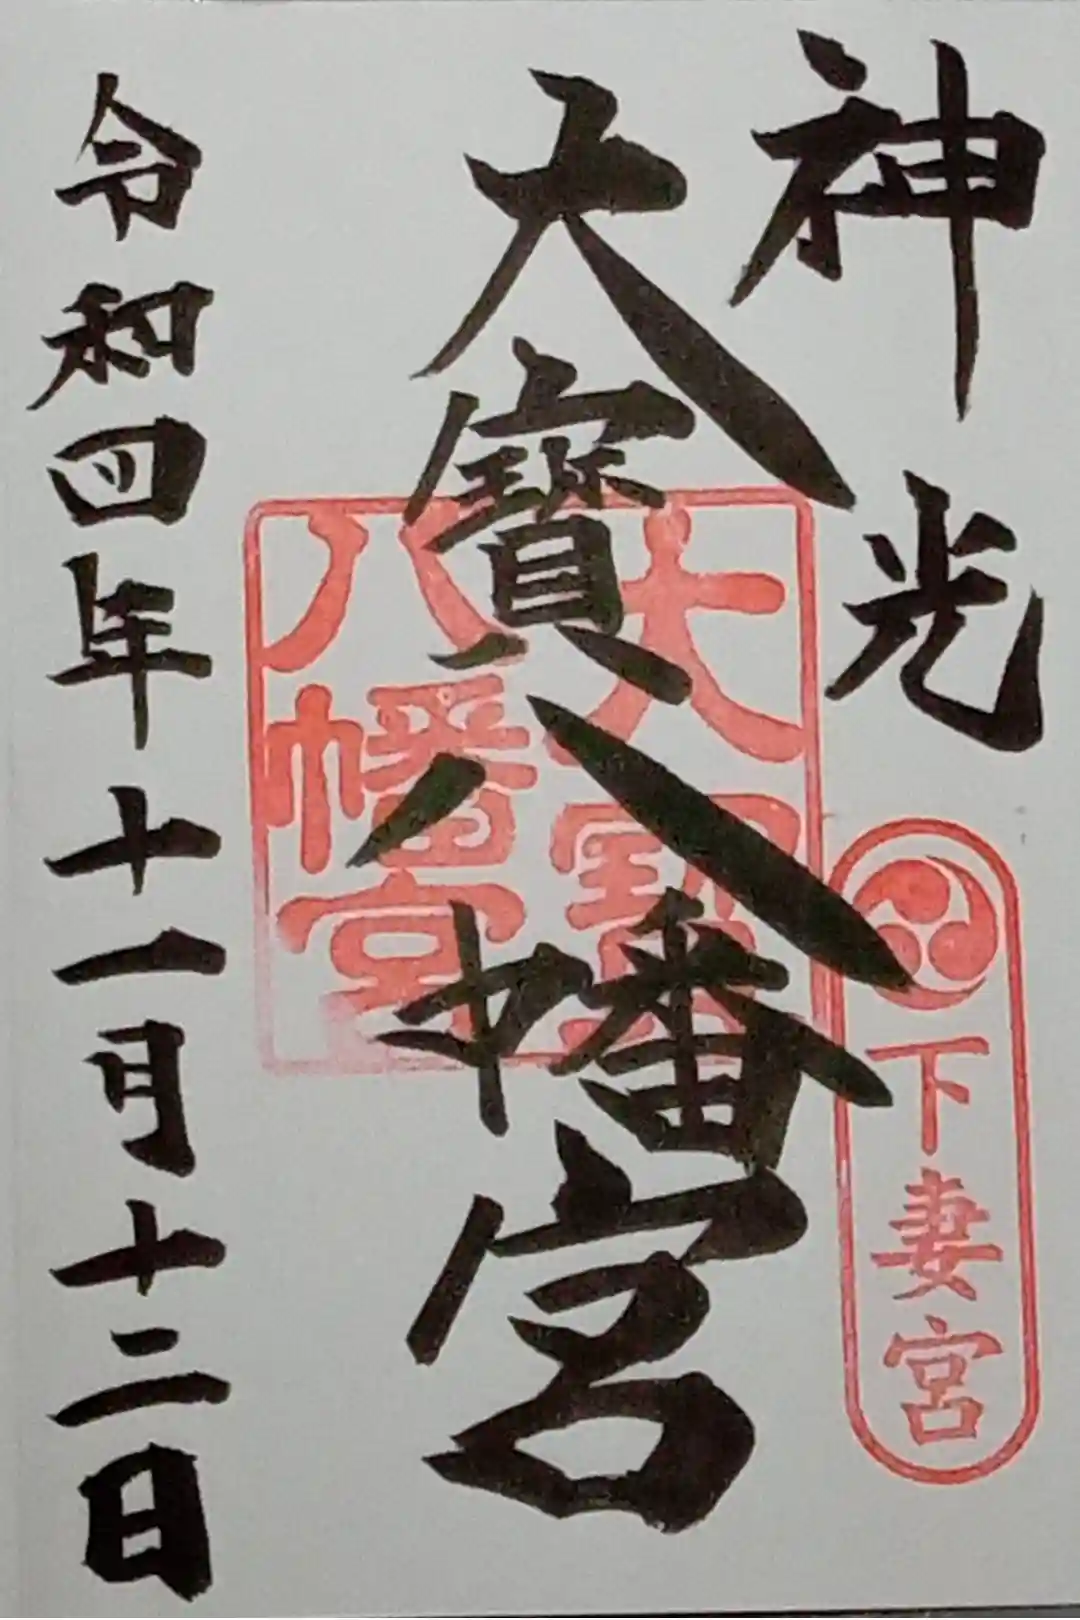 神光
下妻宮
大寳八幡宮
大寳
八幡宮
令和四年十一月十二日